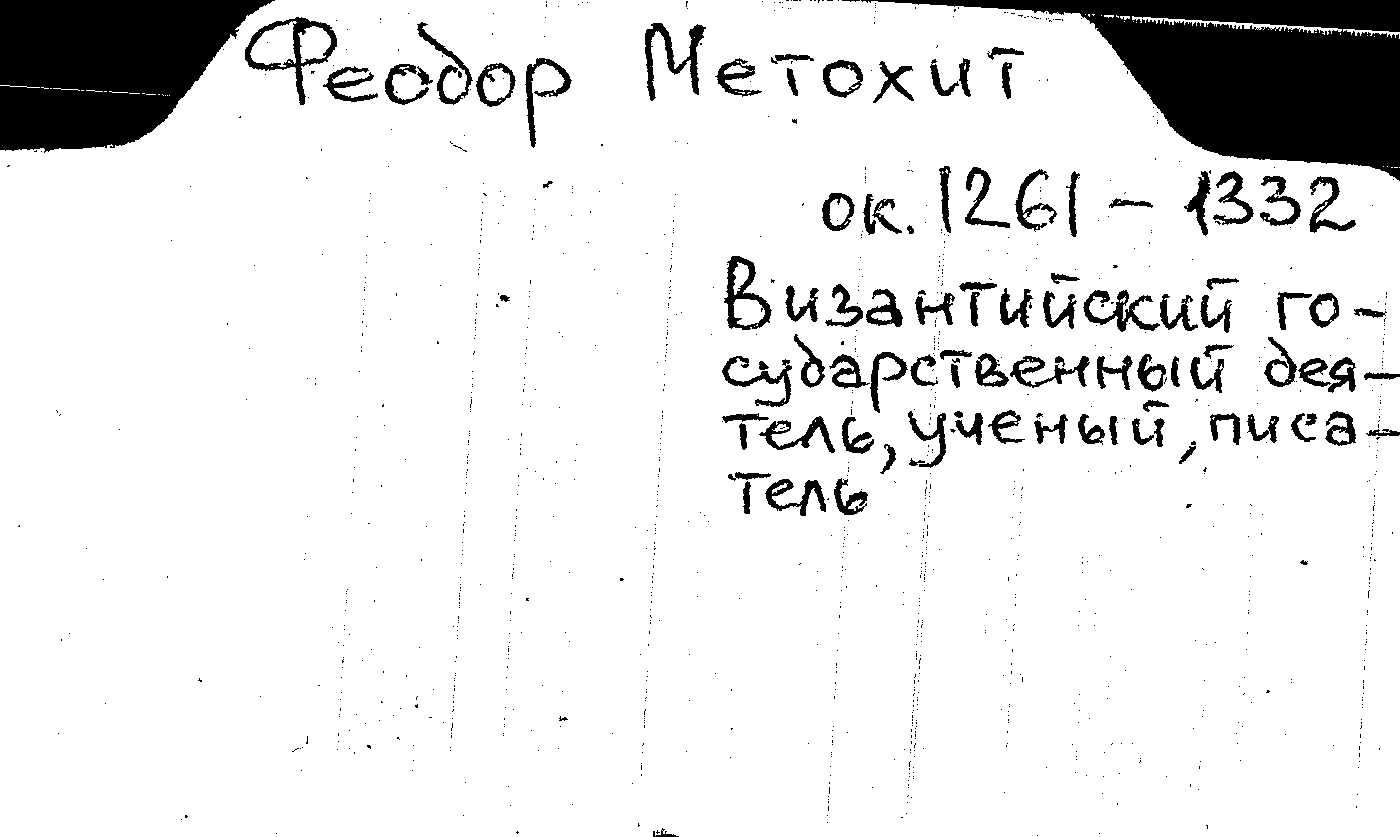 Феодор Метохит
ок. 1261 – 1332
Византийский го-
сударственный дея-
тель, ученый, писа-
тель